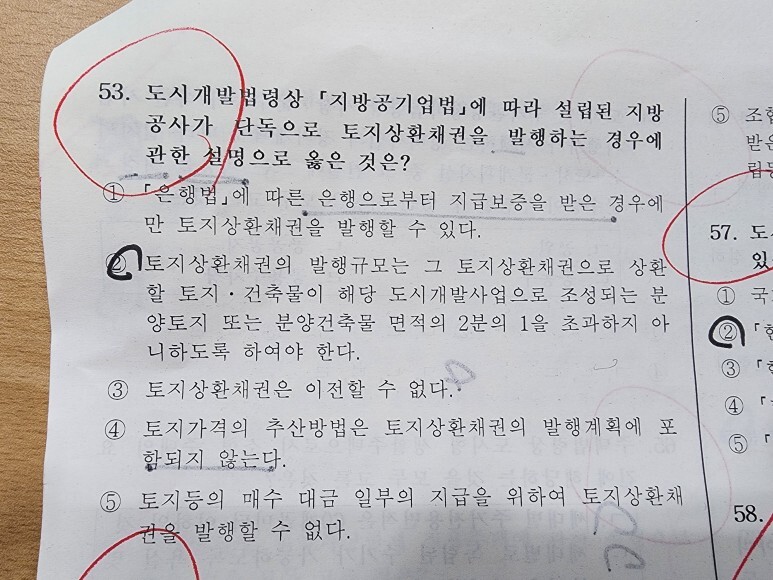 53. 도시개발법령상 「지방공기업법」에 따라 설립된 지방
공사가 단독으로 토지상환채권을 발행하는 경우에
관한 설명으로 옳은 것은?
① 「은행법」에 따른 은행으로부터 지급보증을 받은 경우에
만 토지상환채권을 발행할 수 있다.
② 토지상환채권의 발행규모는 그 토지상환채권으로 상환
할 토지·건축물이 해당 도시개발사업으로 조성되는 분
양토지 또는 분양건축물 면적의 2분의 1을 초과하지 아
니하도록 하여야 한다.
③ 토지상환채권은 이전할 수 없다.
④ 토지가격의 추산방법은 토지상환채권의 발행계획에 포
함되지 않는다.
⑤ 토지등의 매수 대금 일부의 지급을 위하여 토지상환채
권을 발행할 수 없다.
⑤ 조합
받은
57. 도
있
① 국
② 「
③ 「
④ 「
⑤ 「
58.